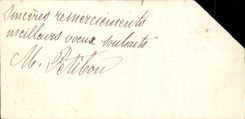 Sincères remerciements
meilleurs voeux souhaits
M. Petibon